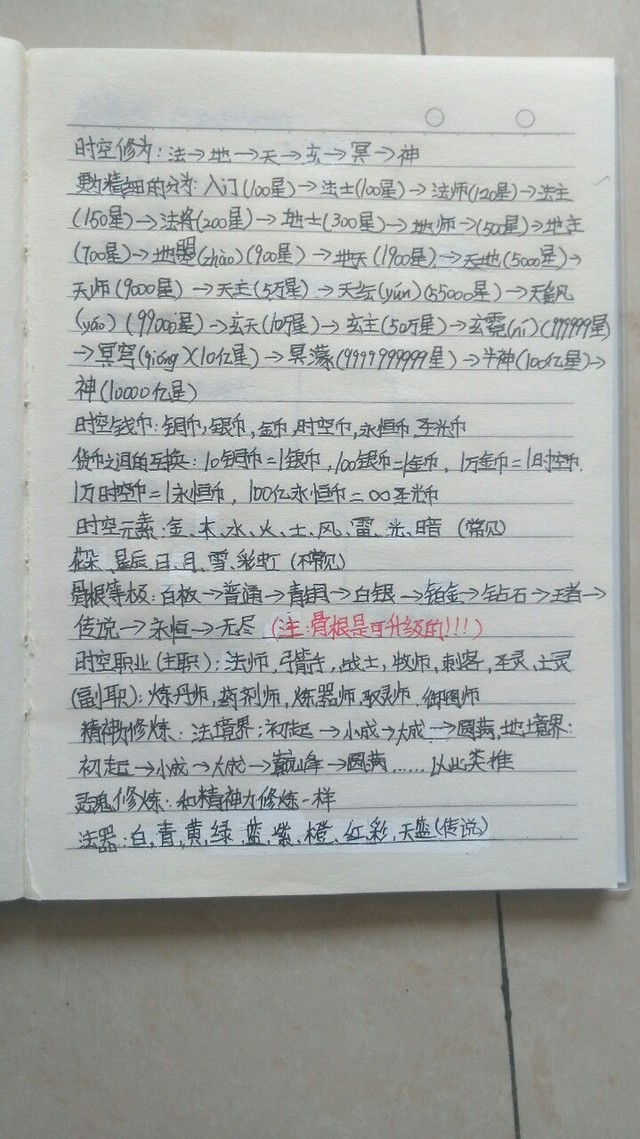 时空修为：法→地→天→玄→冥→神
更为精细的分为：入门(100星)→法士(100星)→法师(120星)→法主
(150星)→法将(200星)→地士(300星)→地师→(500星)→地主
(700星)→地曌(zhào)(900星)→地天(1900星)→天地(5000星)→
天师(9000星)→天主(5万星)→天纭(yún)(55000星)→天飖
(yáo)(99000星)→玄天(10万星)→玄主(50万星)→玄霓(ní)(99999星)
→冥穹(qióng)(10亿星)→冥濛(9999999999星)→半神(100亿星)→
神(10000亿星)
时空钱币：铜币,银币,金币,时空币,永恒币,圣光币
货币之间的互换：10铜币=1银币,100银币=1金币,1万金币=1时空币.
1万时空币=1永恒币,100亿永恒币=∞圣光币
时空元素：金、木、水、火、土、风、雷、光、暗(常见)
花朵、星辰、日、月、雪、彩虹(不常见)
骨根等极：白板→普通→青铜→白银→铂金→钻石→王者→
传说→永恒→无尽(注:骨根是可升级的!!!)
时空职业(主职):法师,弓箭手,战士,牧师,刺客,圣灵,土灵
(副职):炼丹师,药剂师,炼器师,驭灵师.御图师
精神力修炼：法境界:初起→小成→大成→圆满,地境界:
初起→小成→大成→巅峰→圆满……以此类推
灵魂修炼：和精神力修炼一样
法器:白,青,黄,绿,蓝,紫,橙,红,彩,天蓝(传说)